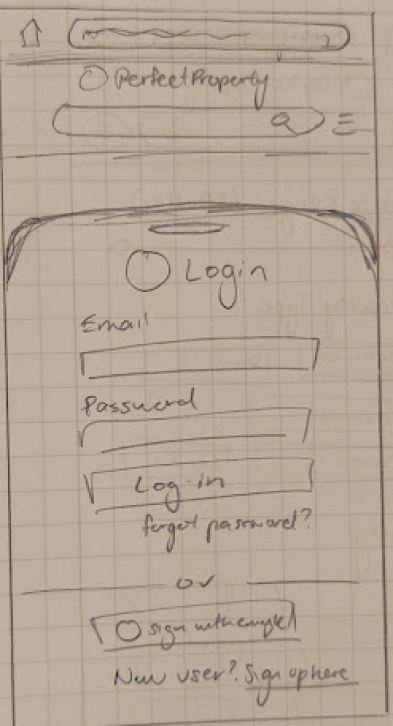 PerfectProperty
Login
Email
Password
Log-in
forgot password?
or
sign with google
New user? Sign up here